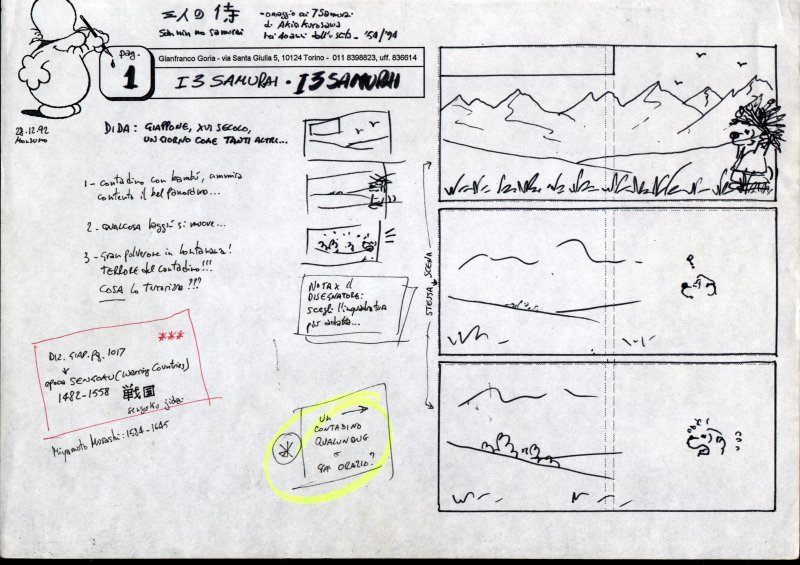 三人の侍
San nin no samurai
- omaggio ai 7 Samurai
di Akira Kurosawa
nei 40 anni dall'uscita - '54/'94
pag.
1
Gianfranco Goria - via Santa Giulia 5, 10124 Torino - 011 8398823, uff. 836614
I 3 SAMURAI · I 3 SAMURAI
28.12.92
DIDA: GIAPPONE, XVI SECOLO,
UN GIORNO COME TANTI ALTRI...
1 - contadino con bambù, ammira
contento il bel panorama...
2 - QUALCOSA laggiù si muove...
3 - Gran polverone in lontananza!
TERRORE del contadino!!!
COSA lo terrorizza???
NOTA X il
DISEGNATORE:
scegli l'inquadratura
più adatta...
STESSA SCENA
***
DIZ. GIAP. pg. 1017
epoca SENGOKU (Warring Countries)
1482-1558 戦国
sengoku jidai
Miyamoto Musashi: 1584-1645
UN
CONTADINO
QUALUNQUE
O
GAI ORAZIO?